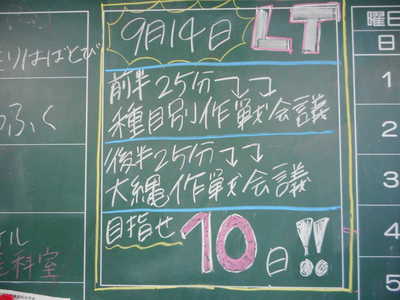 9月14日 LT
前半25分→→
種目別作戦会議
後半25分→→
大縄作戦会議
目指せ 10日!!
りはばとび
ふく
科室
曜日
日
1
2
3
4
5